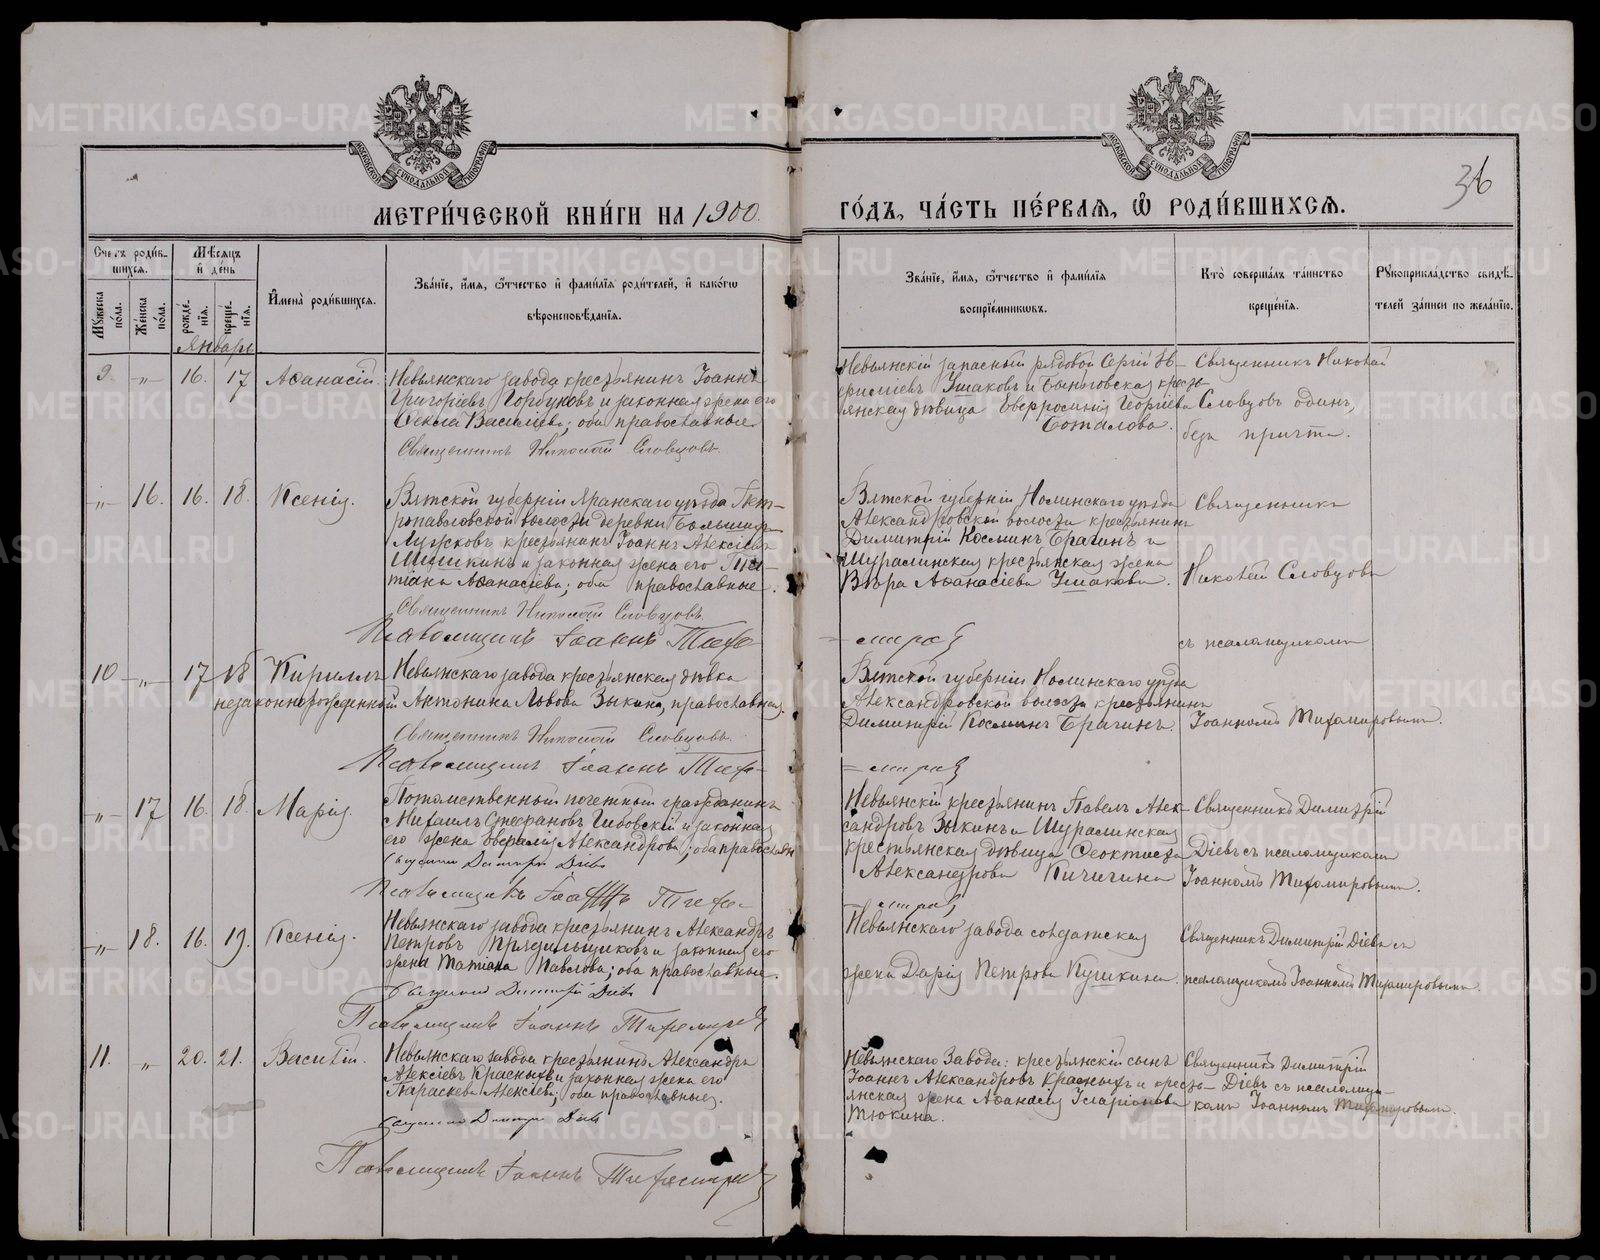 МЕТРИ́ЧЕСКОЙ КНИ́ГИ НА 1900.
ГО́ДЪ, ЧА́СТЬ ПЕ́РВАѦ, Ѡ РОДИ́ВШИХСѦ.
36
Счетъ роди́вшихсѧ.
Мꙋ́жеска по́ла.
Же́нска по́ла.
Мѣ́сѧцъ и де́нь
рожде́нїѧ.
креще́нїѧ.
И҆мена̀ роди́вшихсѧ.
Зва́нїе, и҆́мѧ, ѻ҆́тчество и҆ фами́лїѧ роди́телей, и҆ како́гѡ
вѣроисповѣ́данїѧ.
Зва́нїе, и҆́мѧ, ѻ҆́тчество и҆ фами́лїѧ
воспрїе́мниковъ.
Кто̀ соверша́лъ та́инство
креще́нїѧ.
Рꙋкоприкла́дство свидѣ́-
телей за́писи по жела́нїю.
Январь
9. „ 16. 17. Аѳанасій.
Невьянскаго завода крестьянинъ Іоаннъ
Григоріевъ Горбуновъ и законная жена его
Ѳекла Василіева; оба православные.
Священникъ Николай Словцовъ.
Невьянскій запасный рядовой Сергій
Ушаковъ и Быньговская кресть-
янская дѣвица Евфросинія Георгіева
Священникъ Николай
Словцовъ одинъ,
безъ причта.
„ 16. 16. 18. Ксенія.
Вятской губерніи Яранскаго уѣзда Пет-
ропавловской волости деревни
крестьянинъ Іоаннъ Алексіевъ
и законная жена его Тать-
тіана Аѳанасіева; оба православные.
Священникъ Николай Словцовъ.
Псаломщикъ Іоаннъ Тихо-
миров
Вятской губерніи Нолинскаго уѣзда
Александровской волости крестьянинъ
Димитрій Косминъ Брагинъ и
Шуралинская крестьянская жена
Вѣра Аѳанасіева Ушакова.
Священникъ
Николай Словцовъ
съ псаломщикомъ
10 „ 17 18 Кириллъ
незаконнорожденный
Невьянскаго завода крестьянская дѣвка
Антонина Львова Зыкина, православная.
Священникъ Николай Словцовъ.
Псаломщикъ Іоаннъ Тихо-
миров
Вятской губерніи Нолинскаго уѣзда
Александровской волости крестьянинъ
Димитрій Косминъ Брагинъ.
Іоанномъ Тихомировымъ.
„ 17 16. 18. Марія.
Потомственный почетный гражданинъ
Михаилъ Стефановъ и законная
его жена Александрова; оба православн
Священникъ Димитрій Діевъ
Псаломщикъ Іоаннъ Тихо-
миров
Невьянскій крестьянинъ Павелъ Алек-
сандровъ Зыкинъ и Шуралинская
крестьянская дѣвица Ѳеоктиста
Александрова Кичигина
Священникъ Димитрій
Діевъ съ псаломщикомъ
Іоанномъ Тихомировымъ.
„ 18. 16. 19. Ксенія.
Невьянскаго завода крестьянинъ Александръ
Петровъ Прядильщиковъ и законная его
жена Татіана Павлова; оба православные.
Священникъ Димитрій Діевъ
Псаломщикъ Іоаннъ Тихомиров
Невьянскаго завода солдатская
жена Дарія Петрова Пушкина.
Священникъ Димитрій Діевъ съ
псаломщикомъ Іоанномъ Тихомировымъ.
11. „ 20. 21. Василій.
Невьянскаго завода крестьянинъ Александръ
Алексіевъ Красныхъ и законная жена его
Параскева Алексіева; оба православные.
Священникъ Димитрій Діевъ
Псаломщикъ Іоаннъ Тихомиров
Невьянскаго Завода: крестьянскій сынъ
Іоаннъ Александровъ Красныхъ и кресть-
янская жена Аѳанасія Иларіонова
Тюкина.
Священникъ Димитрій
Діевъ съ псаломщи-
комъ Іоанномъ Тихомировымъ.
METRIKI.GASO-URAL.RU